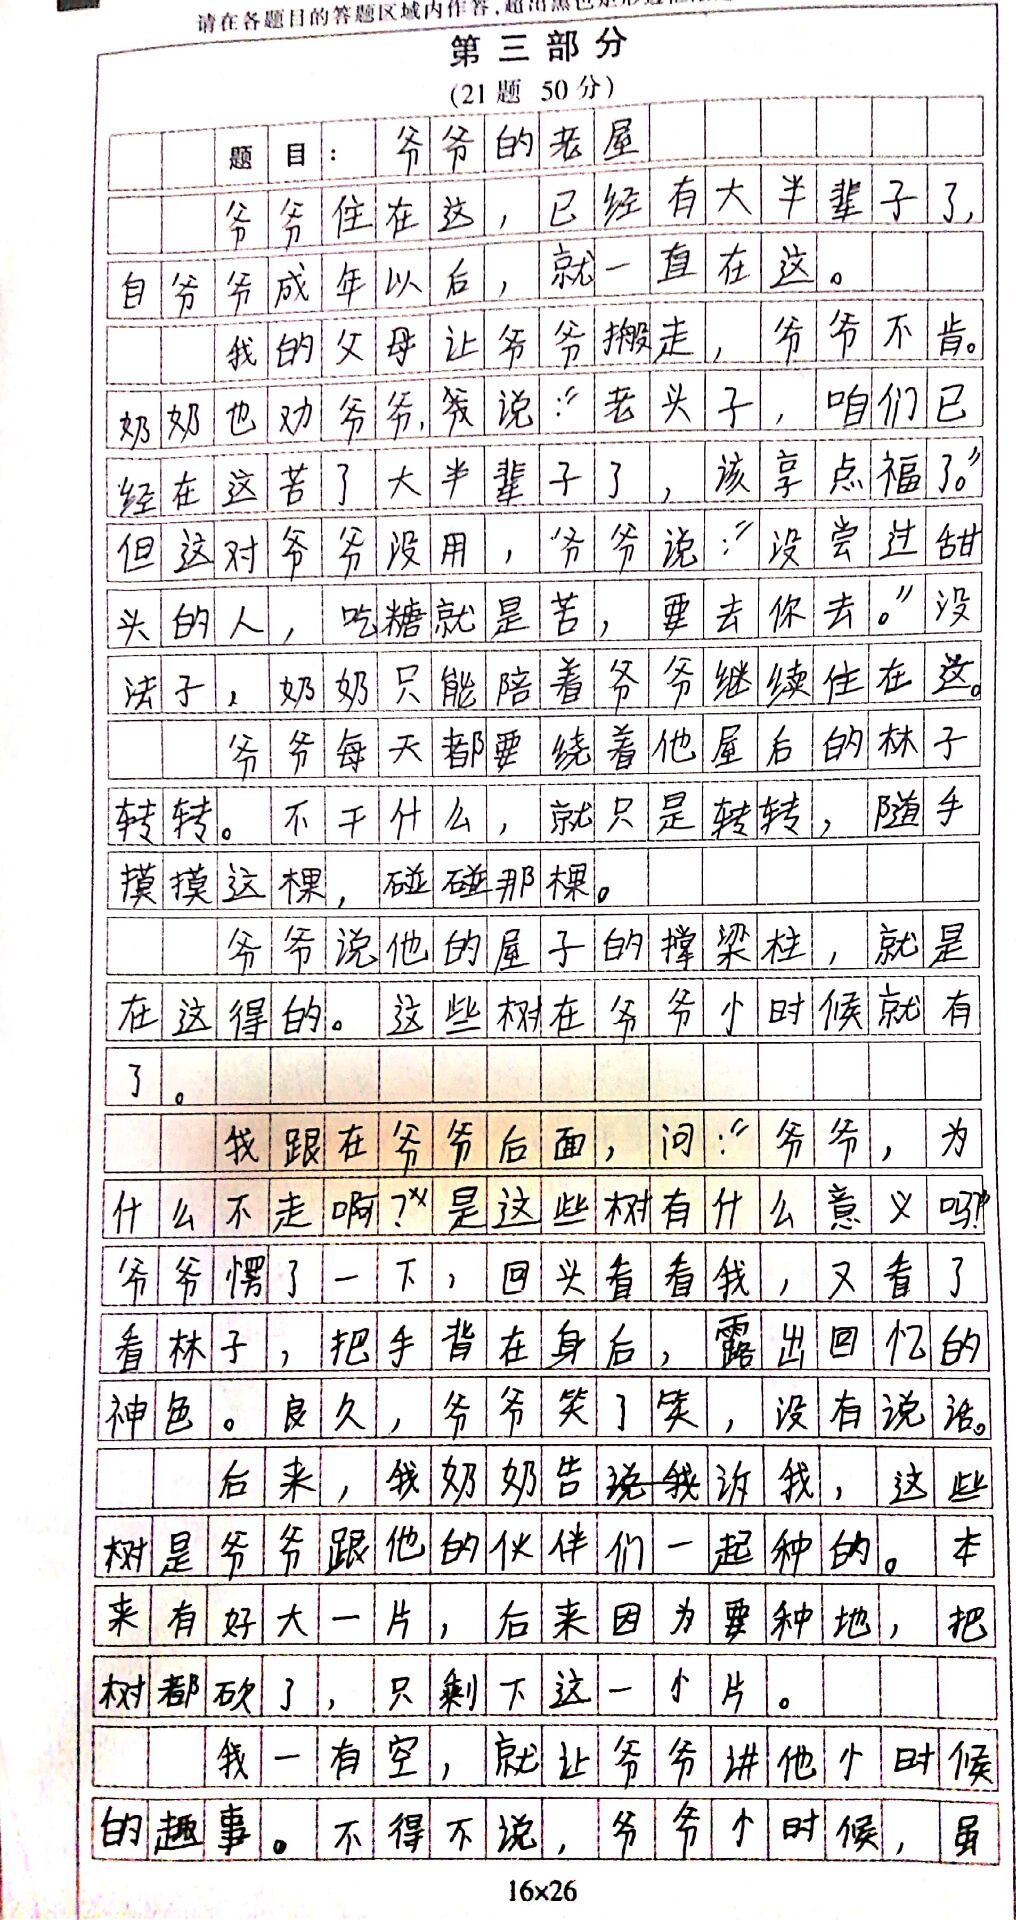 请在各题目的答题区域内作答，超出黑色矩形边框限定
第三部分
(21题 50分)
题目：爷爷的老屋
爷爷住在这，已经有大半辈子了，
自爷爷成年以后，就一直在这。
我的父母让爷爷搬走，爷爷不肯。
奶奶也劝爷爷，说：“老头子，咱们已
经在这苦了大半辈子了，该享点福了。”
但这对爷爷没用，爷爷说：“没尝过甜
头的人，吃糖就是苦，要去你去。”没
法子，奶奶只能陪着爷爷继续住在这。
爷爷每天都要绕着他屋后的林子
转转。不干什么，就只是转转，随手
摸摸这棵，碰碰那棵。
爷爷说他的屋子的撑梁柱，就是
在这得的。这些树在爷爷小时候就有
了。
我跟在爷爷后面，问：“爷爷，为
什么不走啊？是这些树有什么意义吗？”
爷爷愣了一下，回头看看我，又看了
看林子，把手背在身后，露出回忆的
神色。良久，爷爷笑了笑，没有说话。
后来，我奶奶告诉我，这些
树是爷爷跟他的伙伴们一起种的。本
来有好大一片，后来因为要种地，把
树都砍了，只剩下这一小片。
我一有空，就让爷爷讲他小时候
的趣事。不得不说，爷爷小时候，虽
16×26